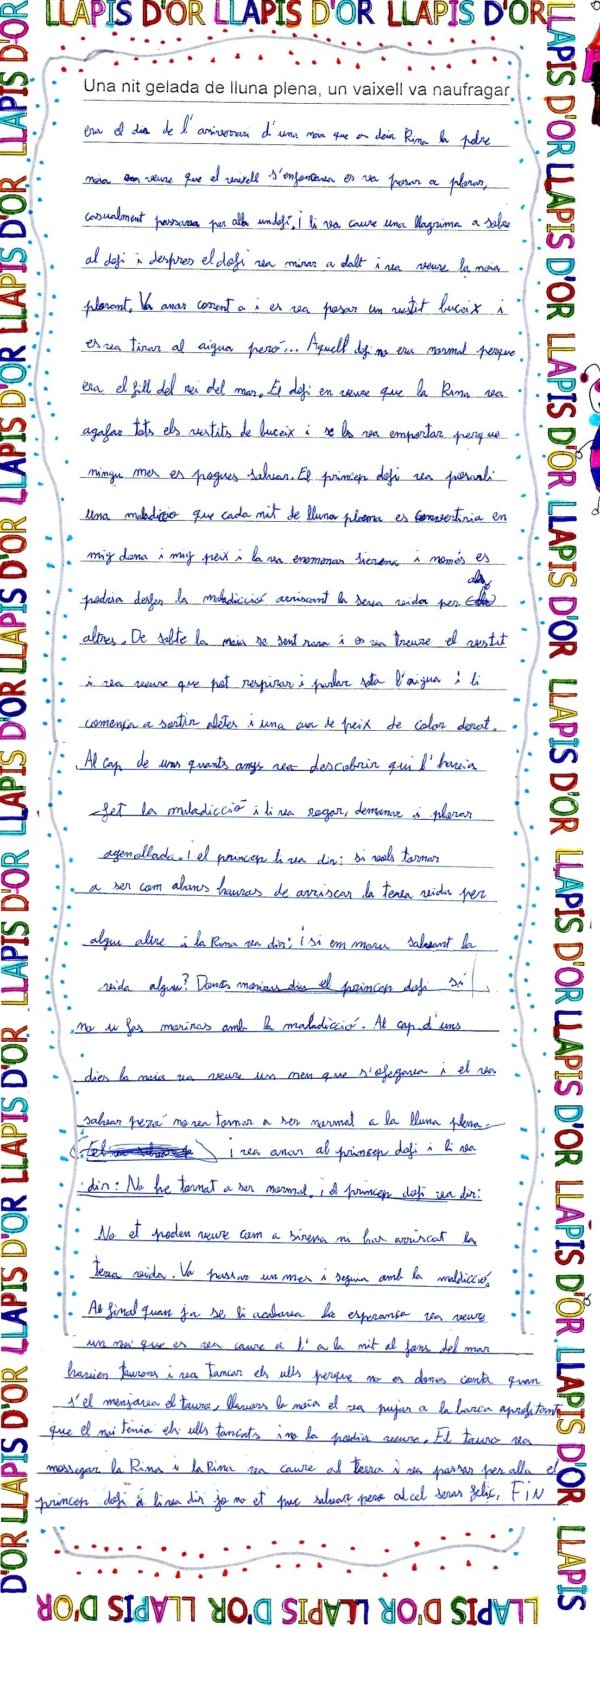 LLAPIS D'OR LLAPIS D'OR LLAPIS D'OR
Una nit gelada de lluna plena, un vaixell va naufragar
era el dia de l'aniversari d'una noia que es deia Rima la pobre
noia en veure que el vaixell s'enfonsava es va posar a plorar,
casualment passava per alla un dofi. i li va caure una llagrima a sobre
al dofi i despres el dofi va mirar a dalt i va veure la noia
plorant. Va anar corrent a i es va posar un vestit buceix i
es va tirar al aigua però... Aquell dofi no era normal perque
era el fill del rei del mar. El dofi en veure que la Rima va
agafar tots els vestits de buceix i se ls va emportar perque
ningu mes es pogues salvar. El princep dofi va posarli
una maladicció que cada nit de lluna plena es convertiria en
mig dona i mig peix i la va enomenar sierena i només es
podria desfer la maladicció arriscant la seva vida per als
altres. De sobte la noia se sent rara i es va treure el vestit
i va veure que pot respirar i parlar sota l'aigua i li
comença a sortir aletes i una cua de peix de color dorat.
Al cap de uns quants anys va descobrir qui l'havia
fet la maladicció i li va rogar, demanar i plorar
agenollada. i el princep li va dir: si vols tornar
a ser com abans hauras de arriscar la teva vida per
algu altre i la Rima va dir: i si em moru salvant la
vida algu? Doncs moriras diu el princep dofi si
no u fas moriras amb la maladicció. Al cap d'uns
dies la noia va veure un nen que s'ofegava i el va
salvar però no va tornar a ser normal a la lluna plena
i va anar al princep dofi i li va
dir: No he tornat a ser normal. i el princep dofi va dir:
No et poden veure com a sirena ni has arriscat la
teva vida. Va passar un mes i seguia amb la maldicció.
Al final quan ja se li acabava la esperança va veure
un noi que es va caure a l'a la nit al fons del mar
havien taurons i va tancar els ulls perque no es dones conta quan
s'el menjava el tauro, llavors la noia el va pujar a la barca aprofitant
que el noi tenia els ulls tancats i no la podia veure. El tauro va
mossegar la Rima i la Rima va caure al terra i va passar per alla el
princep dofi i li va dir jo no et puc salvar pero al cel seras feliç. FIN
LLAPIS D'OR LLAPIS D'OR LLAPIS D'OR